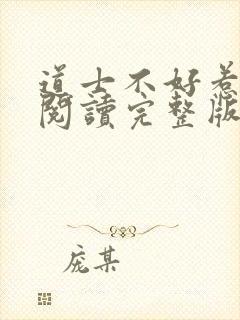 道士不好惹
閱讀完整版
庞某